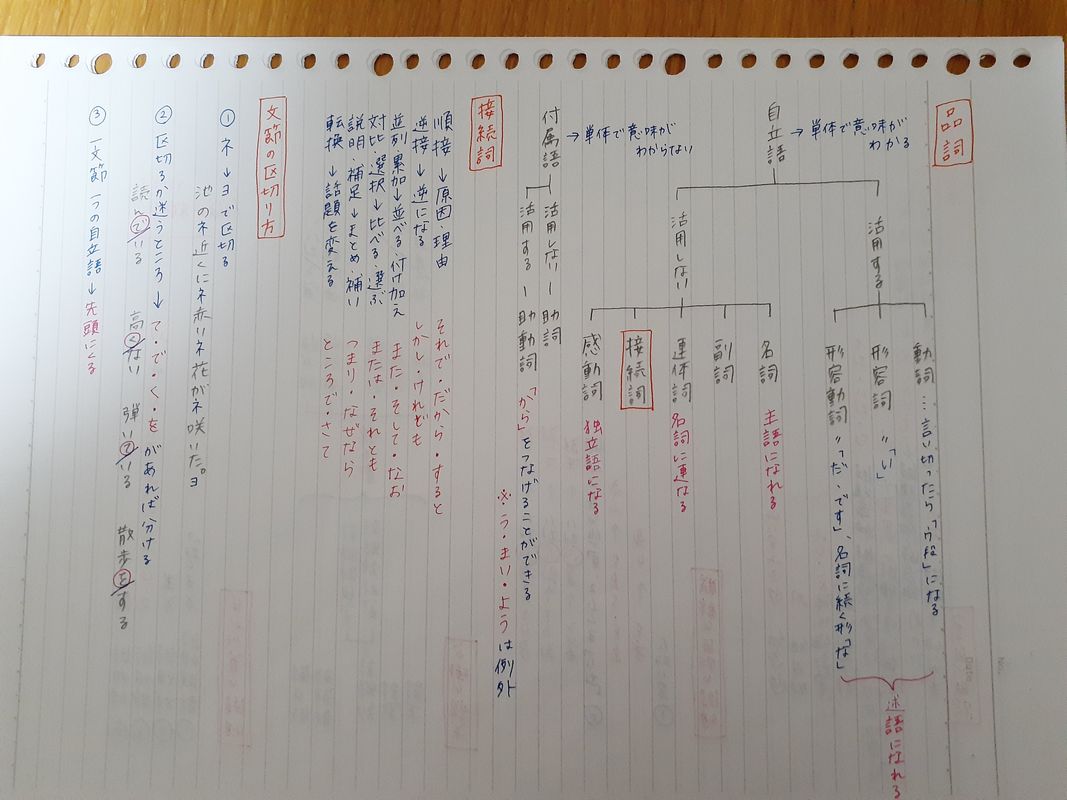 品詞
自立語
→単体で意味が
わかる
活用する
動詞…言い切ったら「ウ段」になる
形容詞 〃「い」
形容動詞 〃「だ・です」、名詞に続く形「な」
述語になれる
活用しない
名詞 主語になれる
副詞
連体詞 名詞に連なる
接続詞
感動詞 独立語になる
付属語
→単体で意味が
わからない
活用しない ー 助詞
活用する ー 助動詞 「から」をつなげることができる
※う・まい・ようは例外
接続詞
順接→原因・理由 それで・だから・すると
逆接→逆になる しかし・けれども
並列・累加→並べる・付け加え また・そして・なお
対比・選択→比べる・選ぶ または・それとも
説明・補足→まとめ・補い つまり・なぜなら
転換→話題を変える ところで・さて
文節の区切り方
① ネ→ヨで区切る
池のネ近くにネ赤いネ花がネ咲いた。ヨ
② 区切るか迷うところ→て・で・く・をがあれば分ける
読んで/いる 高く/ない 弾いて/いる 散歩を/する
③ 一文節一つの自立語→先頭にくる
No.
Date